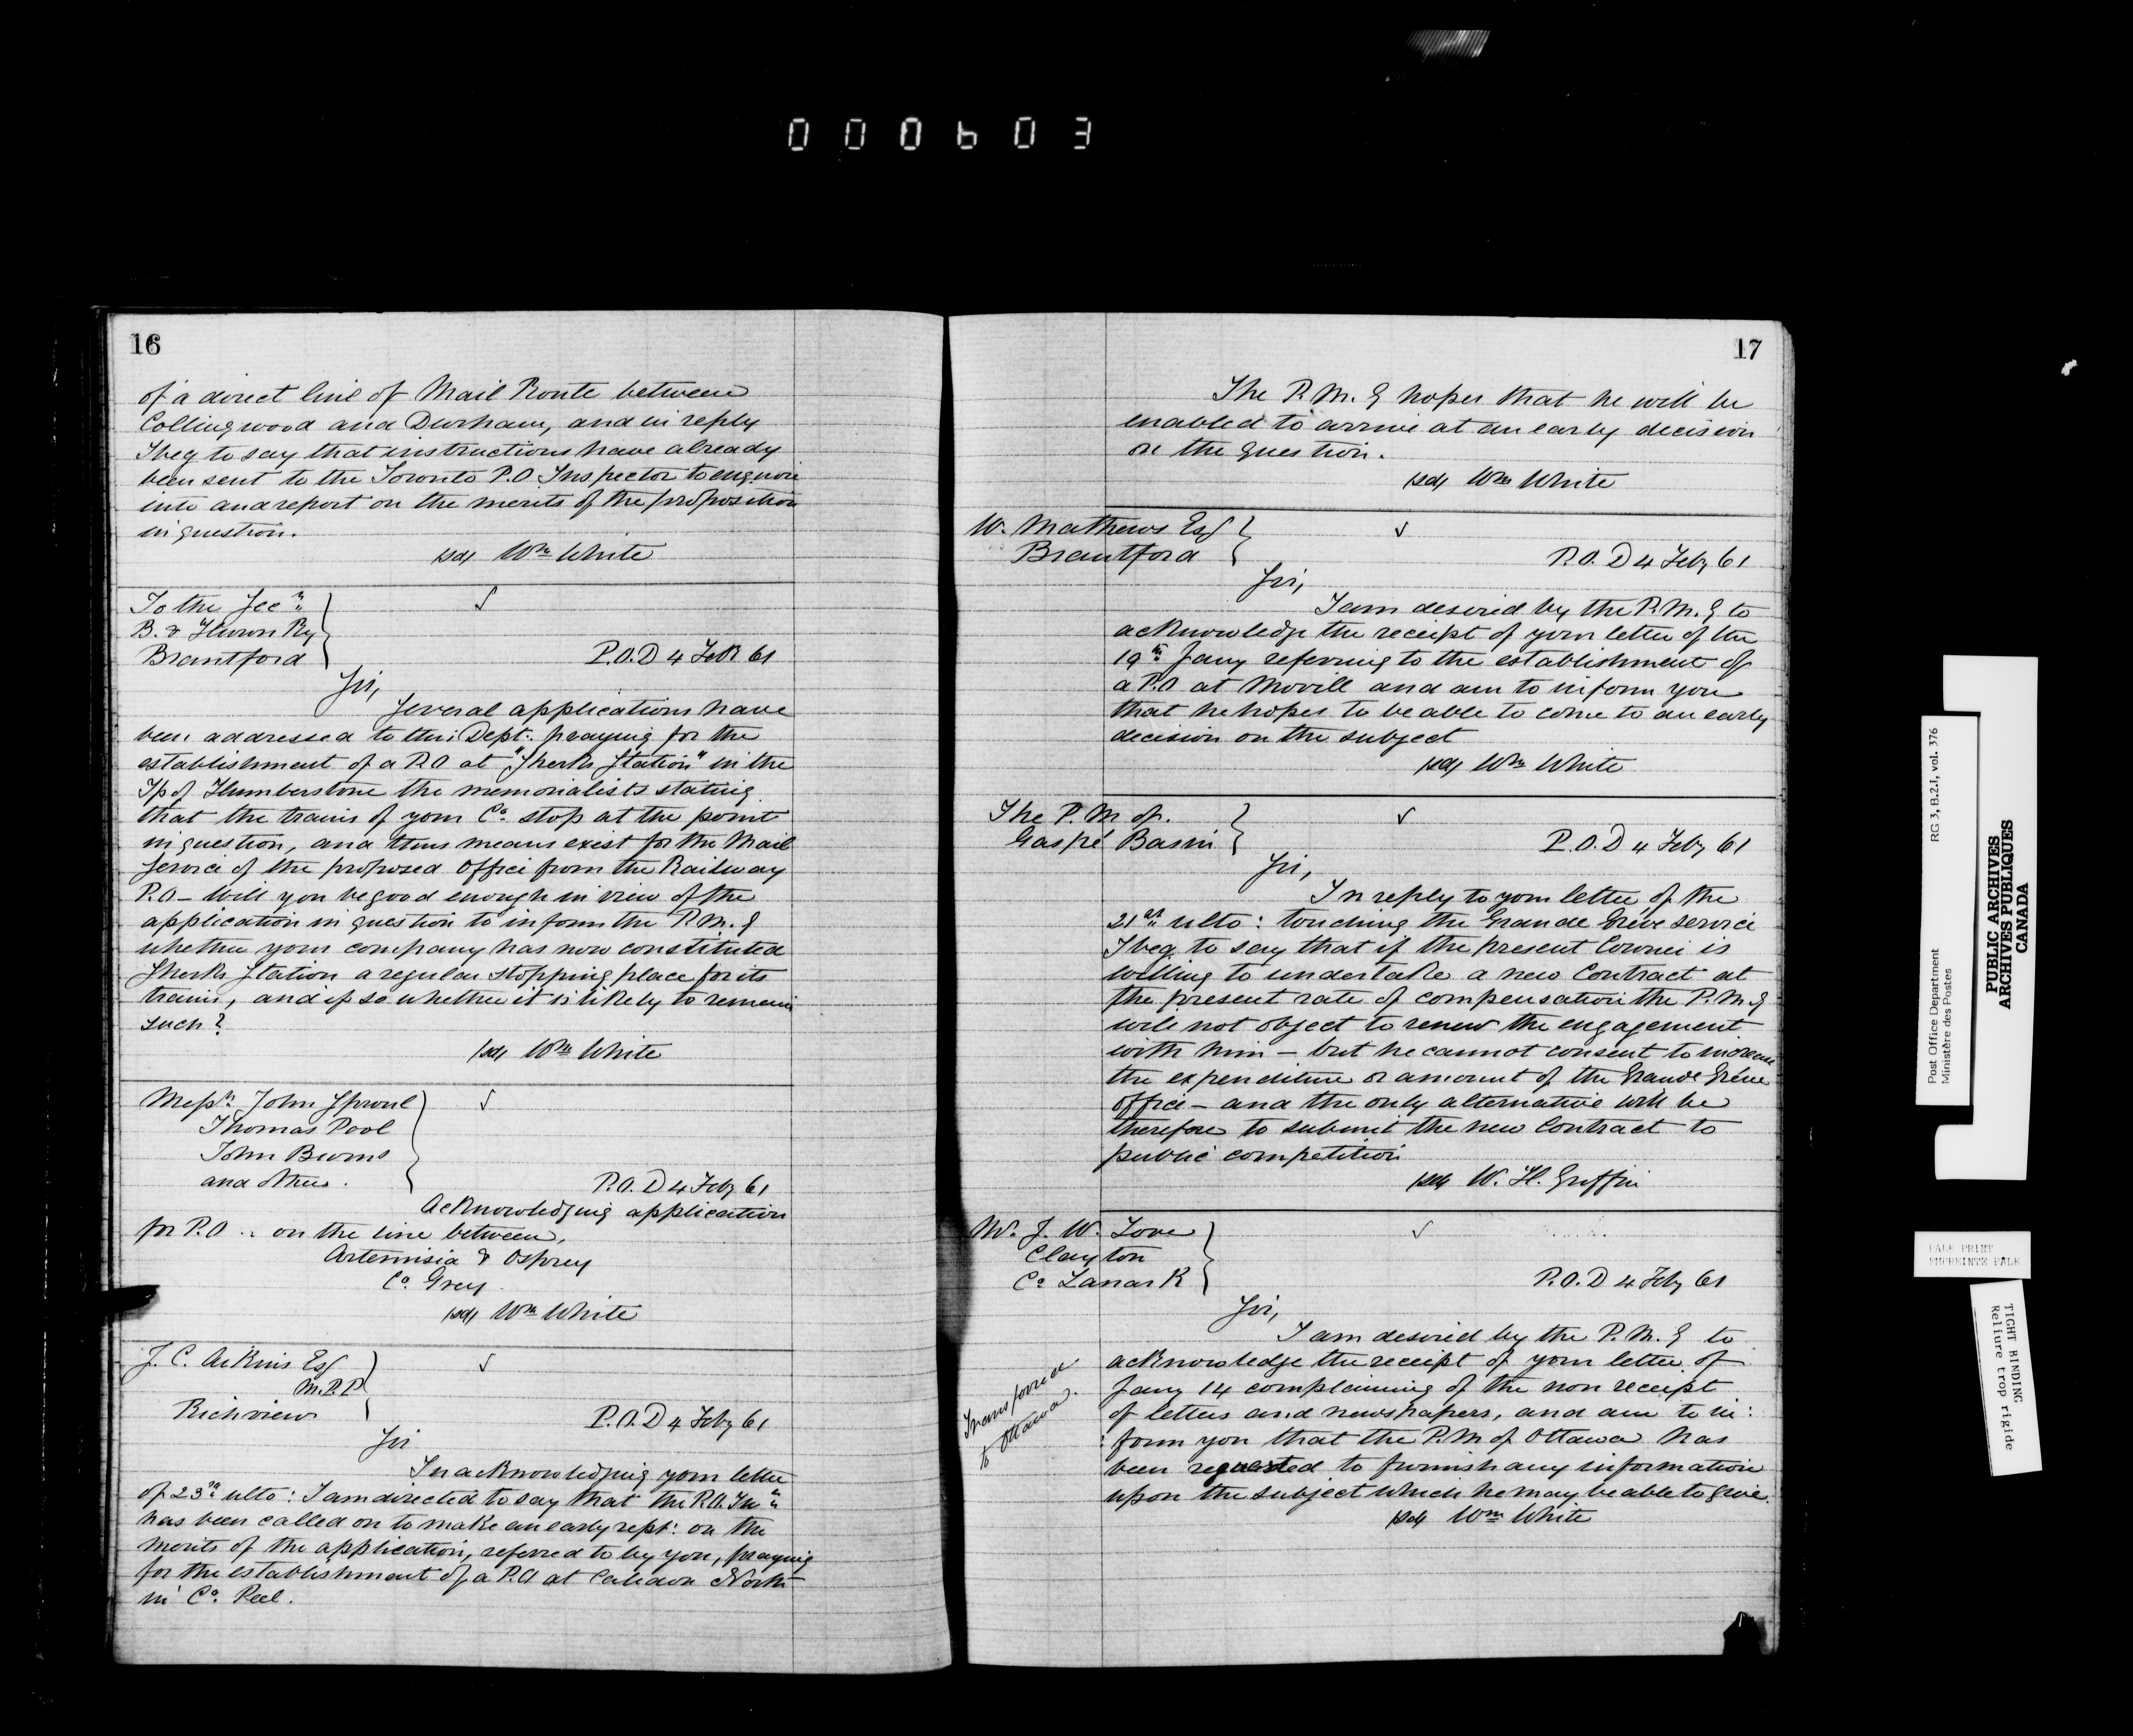 000603
16
of a direct line of Mail Route between
Collingwood and Durham, and in reply
I beg to say that instructions have already
been sent to the Toronto P.O. Inspector to enquire
into and report on the merits of the proposition
in question.
/sd/ Wm White
To the Secy
B. & Huron Ry
Brantford
P.O.D 4 Feb 61
Sir,
Several applications have
been addressed to this Dept. praying for the
establishment of a P.O at "Sherks Station" in the
Tp of Humberstone the memorialists stating
that the trains of your Co. stop at the point
in question, and thus means exist for the Mail
Service of the proposed Office from the Railway
P.O – Will you be good enough in view of the
application in question to inform the P.M.G
whether your company has now constituted
Sherks Station a regular stopping place for its
trains, and if so whether it is likely to remain
such?
/sd/ Wm White
Messrs John Sproul
Thomas Pool
John Burns
and others.
P.O.D 4 Feby 61
Acknowledging application
for P.O. on the line between,
Artemisia & Osprey
Co. Grey
/sd/ Wm White
J. C. Aikins Esq
M.P.P
Richview
P.O.D 4 Feby 61
Sir
In acknowledging your letter
of 23rd ulto: I am directed to say that the P.O. Inr
has been called on to make an early rept: on the
merits of the application, referred to by you, praying
for the establishment of a P.O at Caledon North
in Co. Peel.
17
The P.M.G hopes that he will be
enabled to arrive at an early decision
on the question.
/sd/ Wm White
W. Mathews Esq
Brantford
P.O.D 4 Feby 61
Sir,
I am desired by the P.M.G to
acknowledge the receipt of your letter of the
19th Jany referring to the establishment of
a P.O at Movill and am to inform you
that he hopes to be able to come to an early
decision on the subject
/sd/ Wm White
The P.M of.
Gaspé Basin
P.O.D 4 Feby 61
Sir,
In reply to your letter of the
21st ulto: touching the Grande Grève service
I beg to say that if the present Courier is
willing to undertake a new Contract at
the present rate of compensation the P.M.G
will not object to renew the engagement
with him – but he cannot consent to increase
the expenditure on amount of the Grande Grève
office – and the only alternative will be
therefore to submit the new Contract to
public competition
/sd/ W. H. Griffin
Mr. J. W. Love
Clayton
Co Lanark
P.O.D 4 Feby 61
Sir,
I am desired by the P.M.G to
acknowledge the receipt of your letter of
Jany 14 complaining of the non receipt
of letters and newspapers, and am to in:
:form you that the P.M of Ottawa has
been requested to furnish any information
upon the subject which he may be able to give.
/sd/ Wm White
to Ottawa.
Post Office Department
Ministère des Postes
RG 3, B.2.1, vol. 376
PUBLIC ARCHIVES
ARCHIVES PUBLIQUES
CANADA
PALE PRINT
EMPREINTE PALE
TIGHT BINDING
Reliure trop rigide